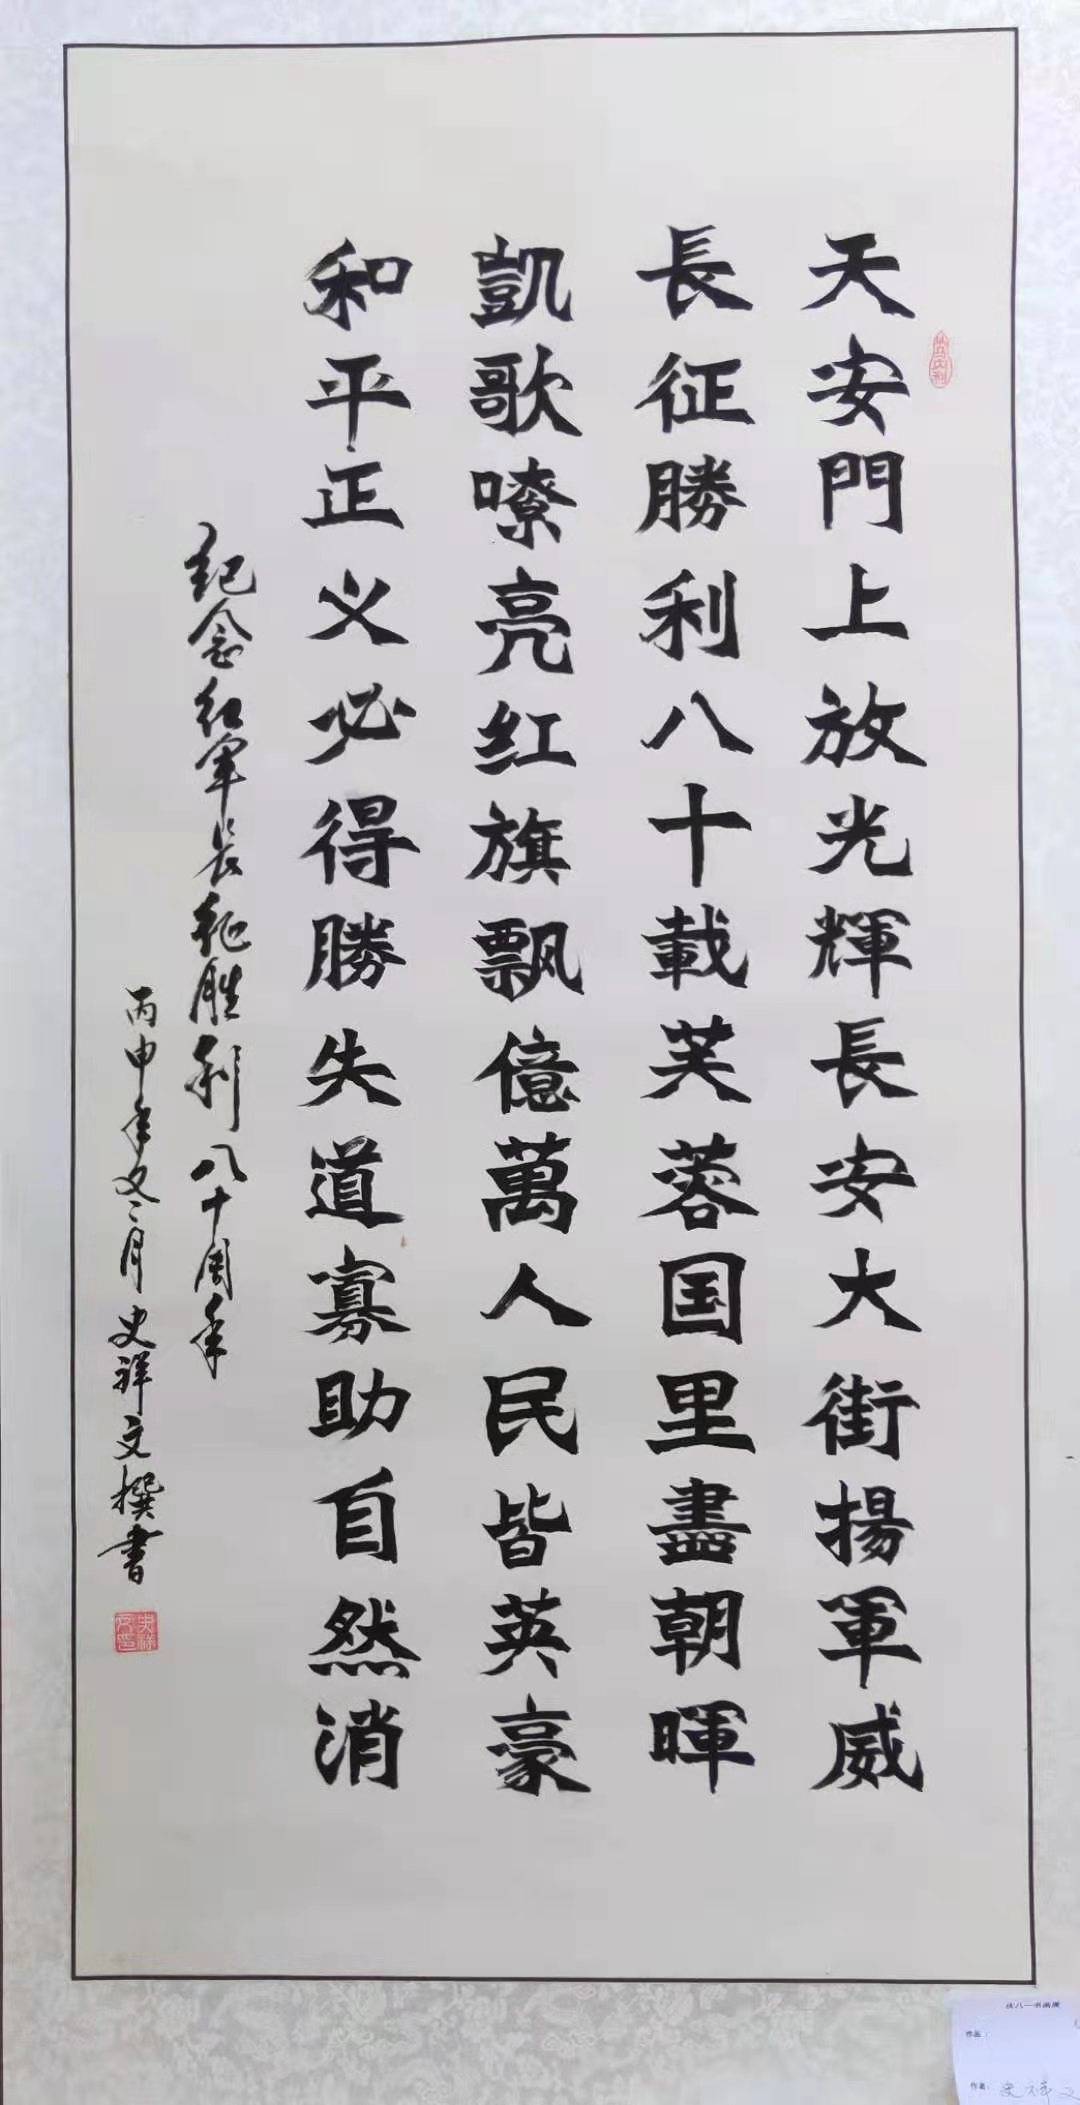 天安門上放光輝長安大街揚軍威
長征勝利八十載芙蓉国里盡朝暉
凱歌嘹亮红旗飘億萬人民皆英豪
和平正义必得勝失道寡助自然消
纪念红军长征胜利八十周年
丙申年又二月史祥文撰書
史祥文印
庆八一书画展
作品：
作者：史祥文